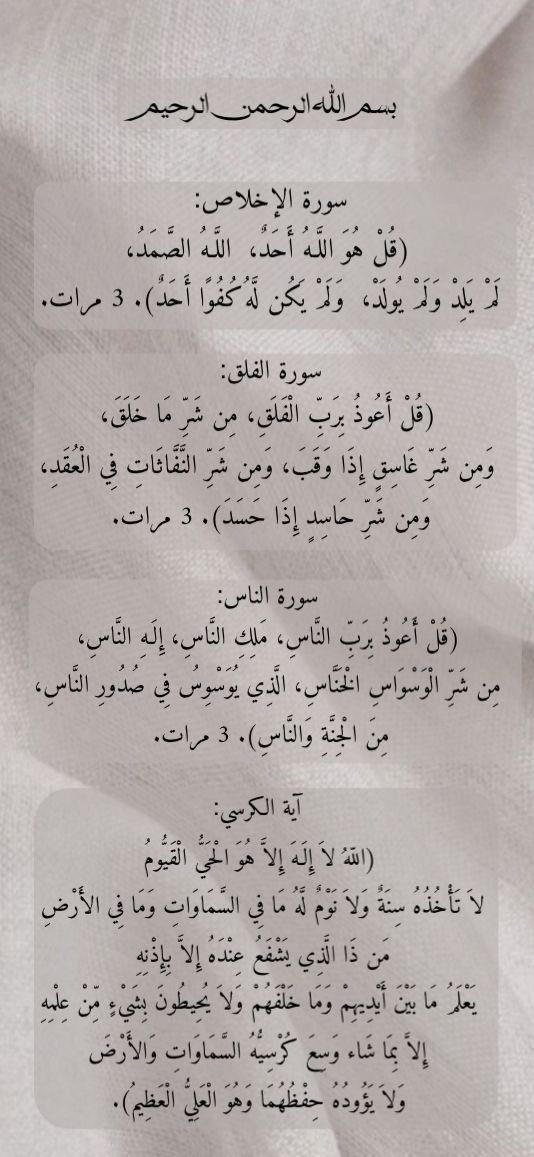 بسم الله الرحمن الرحيم
سورة الإخلاص:
(قُلْ هُوَ اللَّـهُ أَحَدٌ، اللَّـهُ الصَّمَدُ،
لَمْ يَلِدْ وَلَمْ يُولَدْ، وَلَمْ يَكُن لَّهُ كُفُوًا أَحَدٌ). 3 مرات.
سورة الفلق:
(قُلْ أَعُوذُ بِرَبِّ الْفَلَقِ، مِن شَرِّ مَا خَلَقَ،
وَمِن شَرِّ غَاسِقٍ إِذَا وَقَبَ، وَمِن شَرِّ النَّفَّاثَاتِ فِي الْعُقَدِ،
وَمِن شَرِّ حَاسِدٍ إِذَا حَسَدَ). 3 مرات.
سورة الناس:
(قُلْ أَعُوذُ بِرَبِّ النَّاسِ، مَلِكِ النَّاسِ، إِلَـهِ النَّاسِ،
مِن شَرِّ الْوَسْوَاسِ الْخَنَّاسِ، الَّذِي يُوَسْوِسُ فِي صُدُورِ النَّاسِ،
مِنَ الْجِنَّةِ وَالنَّاسِ). 3 مرات.
آية الكرسي:
(اللّهُ لاَ إِلَـهَ إِلاَّ هُوَ الْحَيُّ الْقَيُّومُ
لاَ تَأْخُذُهُ سِنَةٌ وَلاَ نَوْمٌ لَّهُ مَا فِي السَّمَاوَاتِ وَمَا فِي الأَرْضِ
مَن ذَا الَّذِي يَشْفَعُ عِنْدَهُ إِلاَّ بِإِذْنِهِ
يَعْلَمُ مَا بَيْنَ أَيْدِيهِمْ وَمَا خَلْفَهُمْ وَلاَ يُحِيطُونَ بِشَيْءٍ مِّنْ عِلْمِهِ
إِلاَّ بِمَا شَاء وَسِعَ كُرْسِيُّهُ السَّمَاوَاتِ وَالأَرْضَ
وَلاَ يَؤُودُهُ حِفْظُهُمَا وَهُوَ الْعَلِيُّ الْعَظِيمُ).